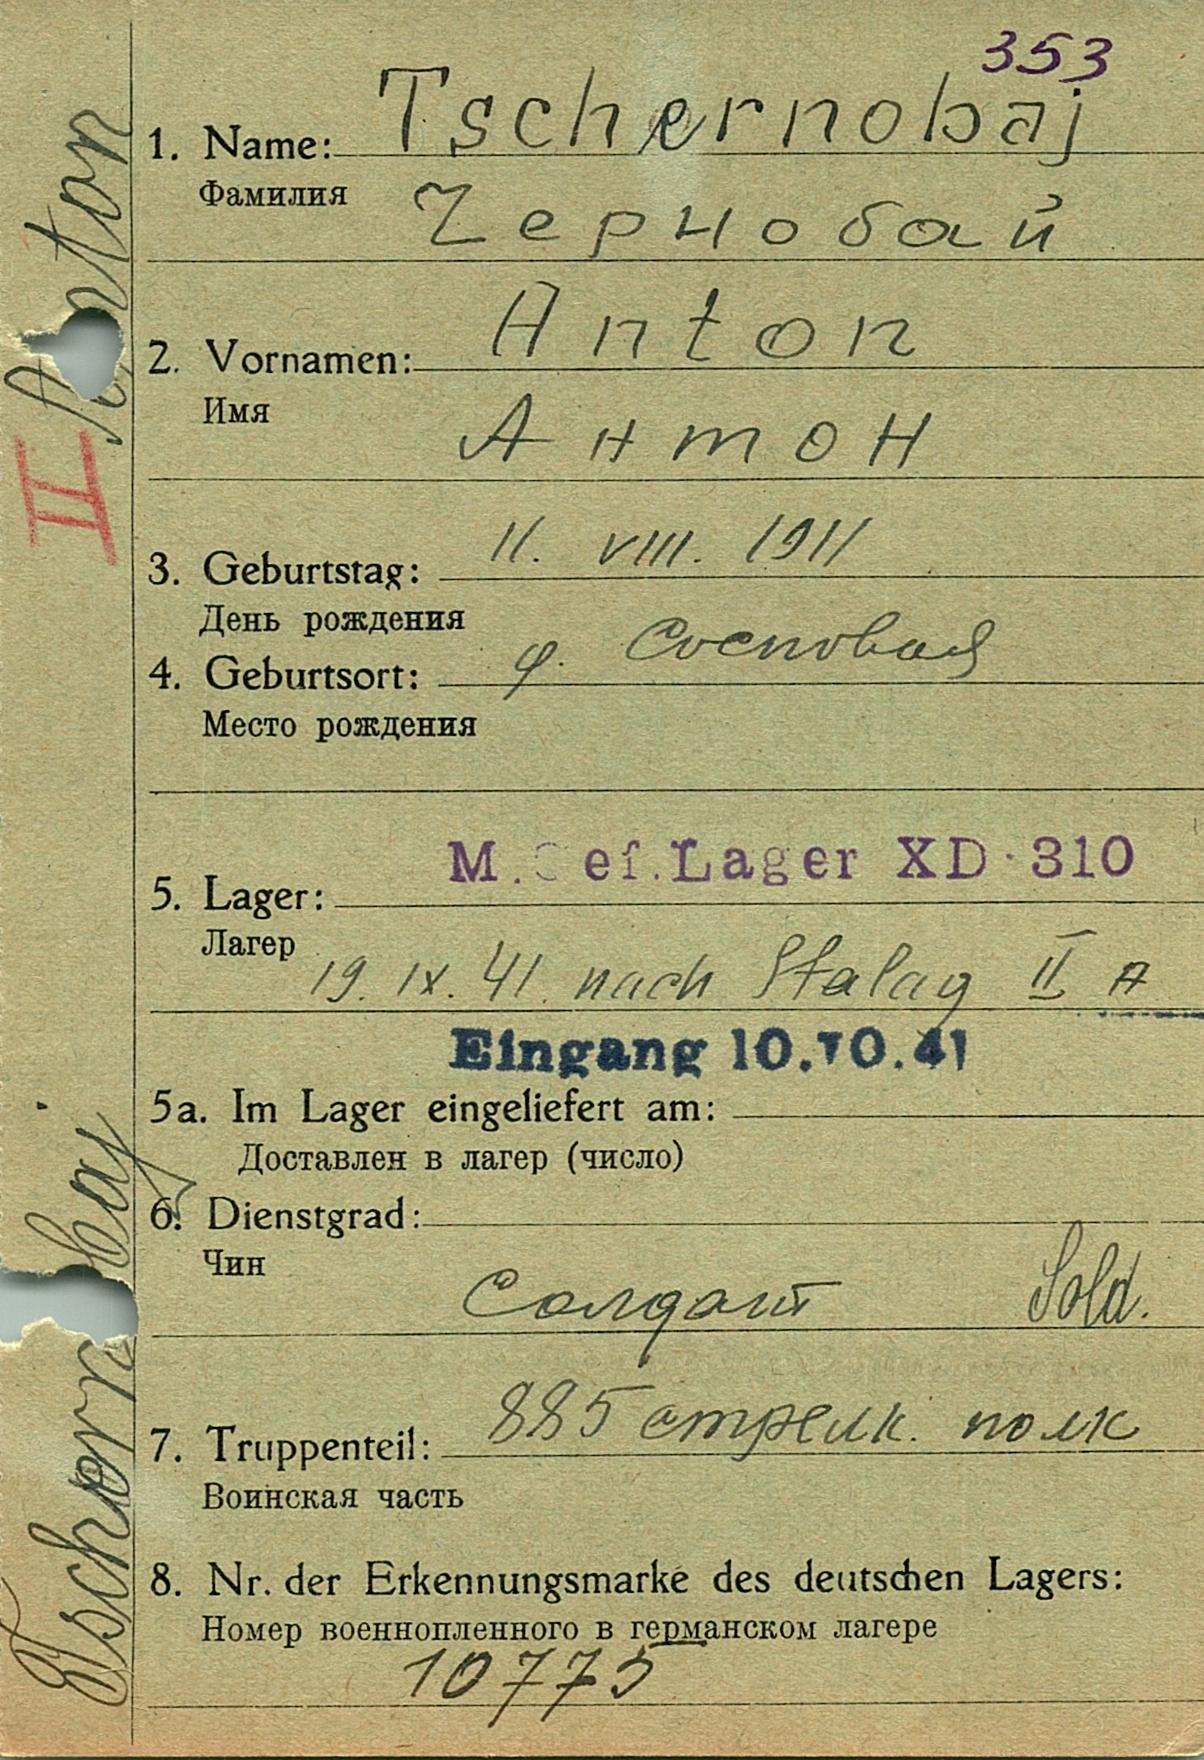 353
1. Name: Tschernobaj
Фамилия
Чернобай
2. Vornamen: Anton
Имя
Антон
3. Geburtstag: 11. VIII. 1911
День рождения
4. Geburtsort: ф. Сосновая
Место рождения
M. Gef. Lager XD 310
5. Lager:
Лагер
19. IX. 41. nach Stalag II A
Eingang 10.10.41
5a. Im Lager eingeliefert am:
Доставлен в лагер (число)
6. Dienstgrad:
Чин
Солдат Sold.
7. Truppenteil: 885 стрелк. полк
Воинская часть
8. Nr. der Erkennungsmarke des deutschen Lagers:
Номер военнопленного в германском лагере
10775
Tschernobaj II Anton